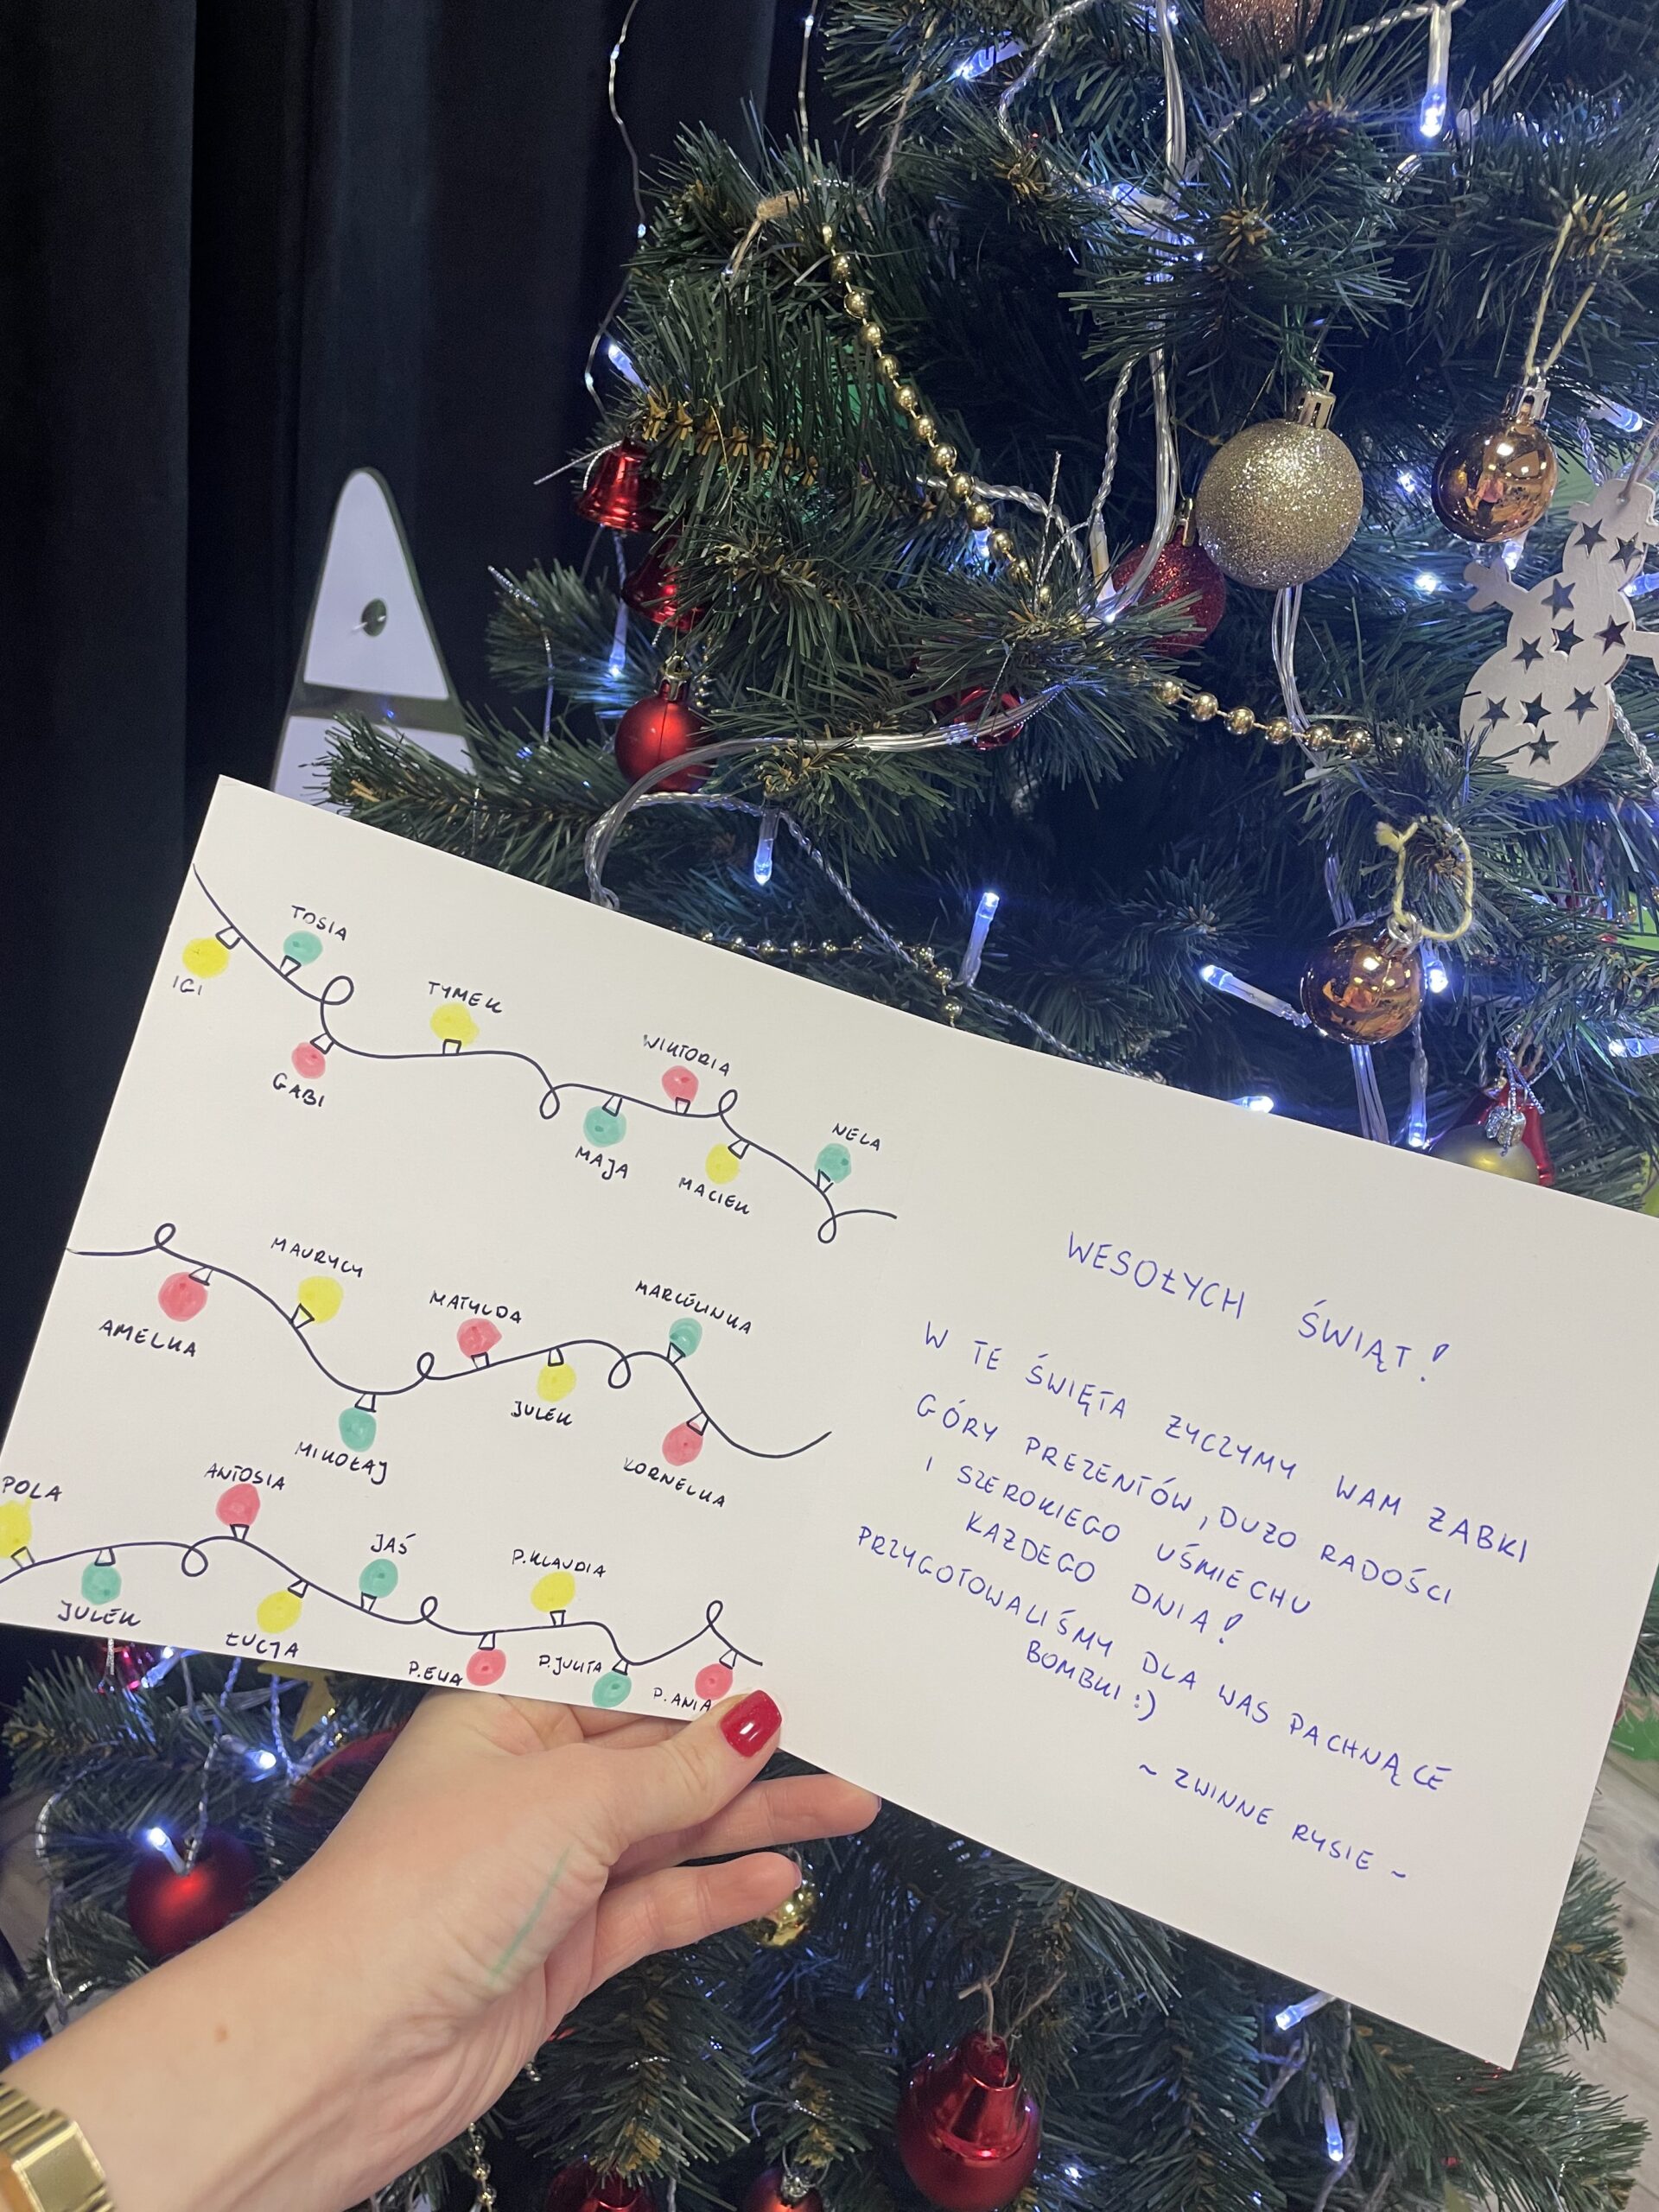 IGI
TOSIA
GABI
TYMEK
MAJA
WIKTORIA
MACIEK
NELA
AMELKA
MAURYCY
MIKOŁAJ
MATYLDA
JULEK
MARCELINKA
KORNELKA
POLA
JULEK
ANTOSIA
ŁUCJA
JAŚ
P.ELIA
P.KLAUDIA
P.JULITA
P.ANIA
WESOŁYCH ŚWIĄT!
W TE ŚWIĘTA ŻYCZYMY WAM ŻABKI
GÓRY PREZENTÓW, DUŻO RADOŚCI
I SZEROKIEGO UŚMIECHU
KAŻDEGO DNIA!
PRZYGOTOWALIŚMY DLA WAS PACHNĄCE
BOMBKI :)
~ ZWINNE RYSIE ~